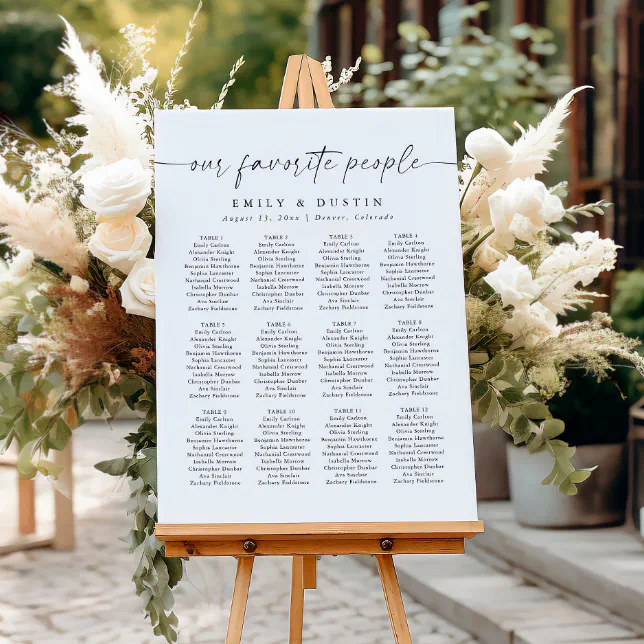 our favorite people
EMILY & DUSTIN
August 13, 20xx | Denver, Colorado
TABLE 1
Emily Carlton
Alexander Knight
Olivia Sterling
Benjamin Hawthorne
Sophia Lancaster
Nathaniel Crestwood
Isabella Morrow
Christopher Dunbar
Ava Sinclair
Zachary Fieldstone
TABLE 2
Emily Carlton
Alexander Knight
Olivia Sterling
Benjamin Hawthorne
Sophia Lancaster
Nathanial Crestwood
Isabella Morrow
Christopher Dunbar
Ava Sinclair
Zachary Fieldstone
TABLE 3
Emily Carlton
Alexander Knight
Olivia Sterling
Benjamin Hawthorne
Sophia Lancaster
Nathanial Crestwood
Isabella Morrow
Christopher Dunbar
Ava Sinclair
Zachary Fieldstone
TABLE 4
Emily Carlton
Alexander Knight
Olivia Sterling
Benjamin Hawthorne
Sophia Lancaster
Nathanial Crestwood
Isabella Morrow
Christopher Dunbar
Ava Sinclair
Zachary Fieldstone
TABLE 5
Emily Carlton
Alexander Knight
Olivia Sterling
Benjamin Hawthorne
Sophia Lancaster
Nathanial Crestwood
Isabella Morrow
Christopher Dunbar
Ava Sinclair
Zachary Fieldstone
TABLE 6
Emily Carlton
Alexander Knight
Olivia Sterling
Benjamin Hawthorne
Sophia Lancaster
Nathanial Crestwood
Isabella Morrow
Christopher Dunbar
Ava Sinclair
Zachary Fieldstone
TABLE 7
Emily Carlton
Alexander Knight
Olivia Sterling
Benjamin Hawthorne
Sophia Lancaster
Nathanial Crestwood
Isabella Morrow
Christopher Dunbar
Ava Sinclair
Zachary Fieldstone
TABLE 8
Emily Carlton
Alexander Knight
Olivia Sterling
Benjamin Hawthorne
Sophia Lancaster
Nathanial Crestwood
Isabella Morrow
Christopher Dunbar
Ava Sinclair
Zachary Fieldstone
TABLE 9
Emily Carlton
Alexander Knight
Olivia Sterling
Benjamin Hawthorne
Sophia Lancaster
Nathanial Crestwood
Isabella Morrow
Christopher Dunbar
Ava Sinclair
Zachary Fieldstone
TABLE 10
Emily Carlton
Alexander Knight
Olivia Sterling
Benjamin Hawthorne
Sophia Lancaster
Nathanial Crestwood
Isabella Morrow
Christopher Dunbar
Ava Sinclair
Zachary Fieldstone
TABLE 11
Emily Carlton
Alexander Knight
Olivia Sterling
Benjamin Hawthorne
Sophia Lancaster
Nathanial Crestwood
Isabella Morrow
Christopher Dunbar
Ava Sinclair
Zachary Fieldstone
TABLE 12
Emily Carlton
Alexander Knight
Olivia Sterling
Benjamin Hawthorne
Sophia Lancaster
Nathanial Crestwood
Isabella Morrow
Christopher Dunbar
Ava Sinclair
Zachary Fieldstone